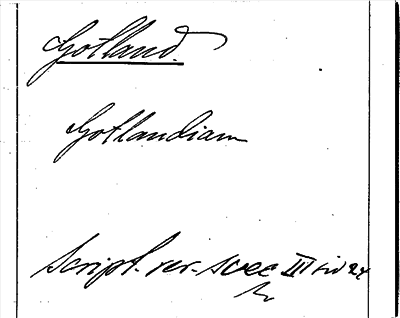 Gotland.
Gotlandiam
Script. rer. svec III sid 24